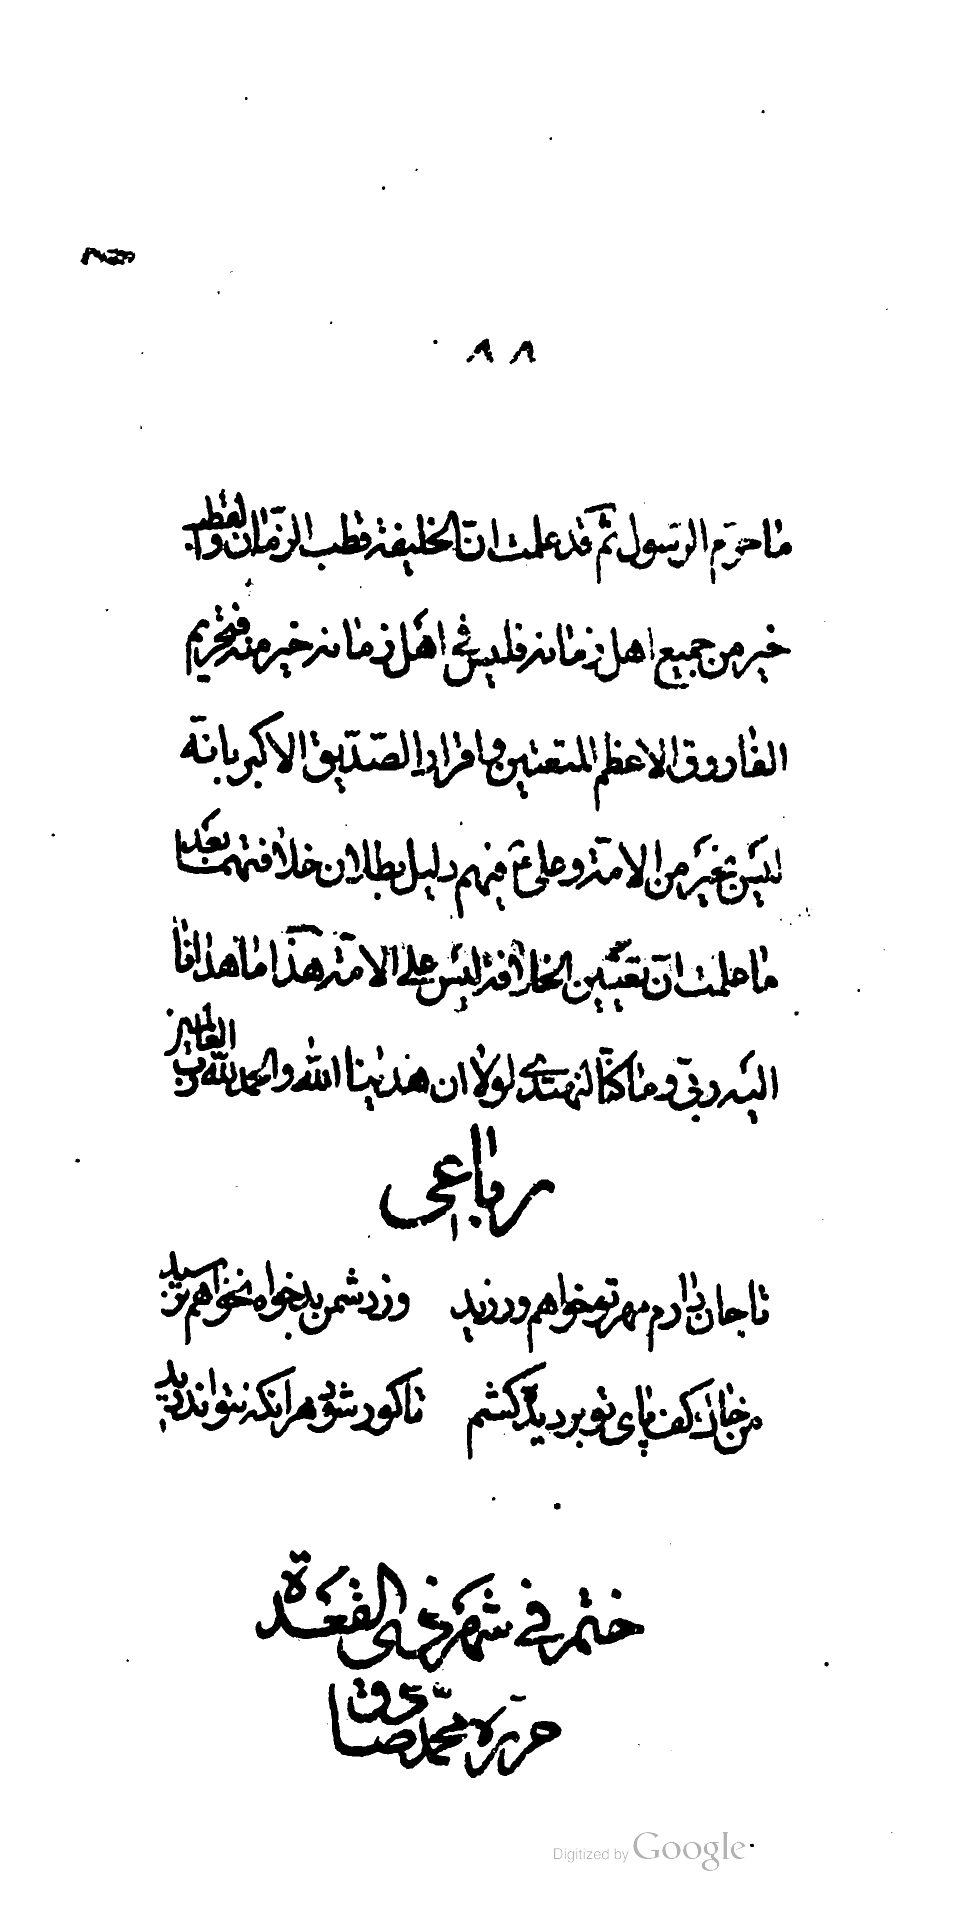 ٨٨
ما حرم الرسول ثم قد علمت ان الخليفة قطب الزمان والقطب
خير من جميع اهل زمانه فليس في اهل زمانه خير منه فتحريم
الفاروق الاعظم المتعتين واقراد الصديق الاكبر بانه
ليس بخير من الامة وعلي فيهم دليل بطلان خلافتهما بعد
ما علمت ان تعيين الخلافة ليس على الامة هذا ما هدانا
اليه ربي وما كنا لنهتدي لولا ان هدينا الله والحمد لله رب العالمين
رباعي
تا جان دارم مهر تو خواهم ورزيد وز دشمن بدخواه نخواهم ترسيد
من خاك كف پاى تو بر ديده كشم تا كور شود هر انكه نتواند ديد
ختم في شهر ذي القعدة
حرره محمد صادق
Digitized by Google